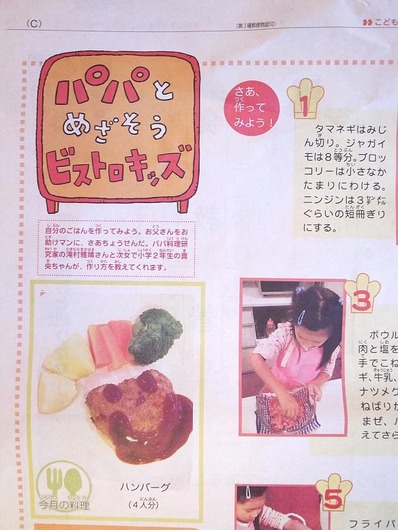 (C)
(第3種郵便物認可)
こども
パパと
めざそう
ビストロキッズ
さあ、
作って
みよう!
自分のごはんを作ってみよう。お父さんをお
助けマンに、さあちょうせんだ。パパ料理研
究家の滝村雅晴さんと次女で小学2年生の真
央ちゃんが、作り方を教えてくれます。
今月の料理
ハンバーグ
(4人分)
1
タマネギはみじ
ん切り。ジャガイ
モは8等分。ブロッ
コリーは小さなか
たまりにわける。
ニンジンは3センチ
ぐらいの短冊ぎり
にする。
3
ボウル
肉と塩を
手でこね
ギ、牛乳、
ナツメグ
ねばりが
まぜ、
えてさら
5
フライパ